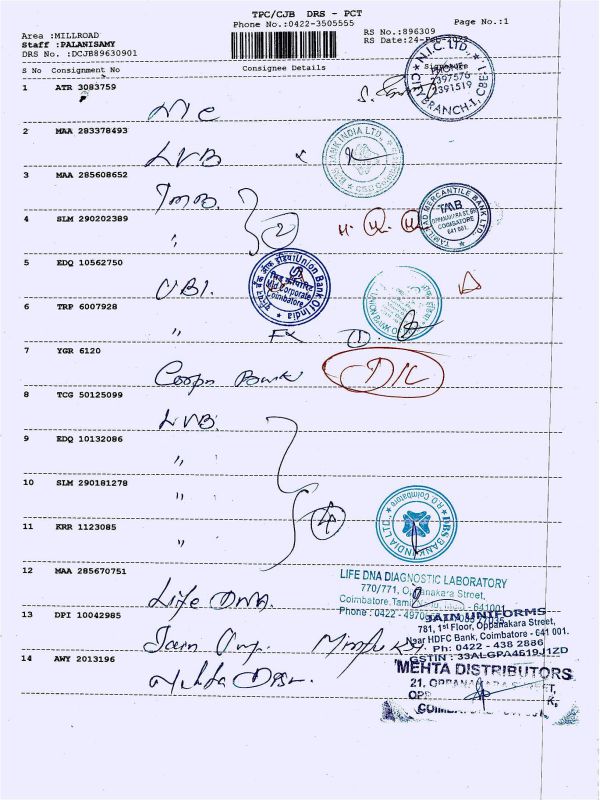 TPC/CJB DRS - PCT
Phone No.:0422-3505555
Page No.:1
Area :MILLROAD
Staff :PALANISAMY
DRS No. :DCJB89630901
RS No.:896309
RS Date:24-
S No Consignment No Consignee Details Signature
1 ATR 3083759
N.I.C. LTD.,
PHONE
2397576
2391519
CITY BRANCH-I, CBE-1.
2 MAA 283378493
LVB
BANK INDIA LTD.
3 MAA 285608652
TMB.
4 SLM 290202389
"
2
TAMILNAD MERCANTILE BANK LTD.
TMB
OPPANAKARA ST. BR.
COIMBATORE
641 001.
5 EDQ 10562750
UBI.
Union Bank Of India
Mid Corporate
Coimbatore
UNION BANK OF
6 TRP 6007928
"
7 YGR 6120
Coopn Bank
D/C
8 TCG 50125099
LVB.
9 EDQ 10132086
"
10 SLM 290181278
"
4
11 KRR 1123085
"
DBS BANK INDIA LTD.,
R.O Coimbatore
12 MAA 285670751
Life DNA.
LIFE DNA DIAGNOSTIC LABORATORY
770/771, Oppanakara Street,
Coimbatore, Tamil - 641001
Phone : 0422 -
13 DPI 10042985
Jain Uni.
JAIN UNIFORMS
781, 1st Floor, Oppanakara Street,
Near HDFC Bank, Coimbatore - 641 001.
Ph: 0422 - 438 2886
GSTIN : 33ALGPA4619J1ZD
14 AWY 2013196
Mehta Dis.
MEHTA DISTRIBUTORS
21, OPPANAKARA STREET,